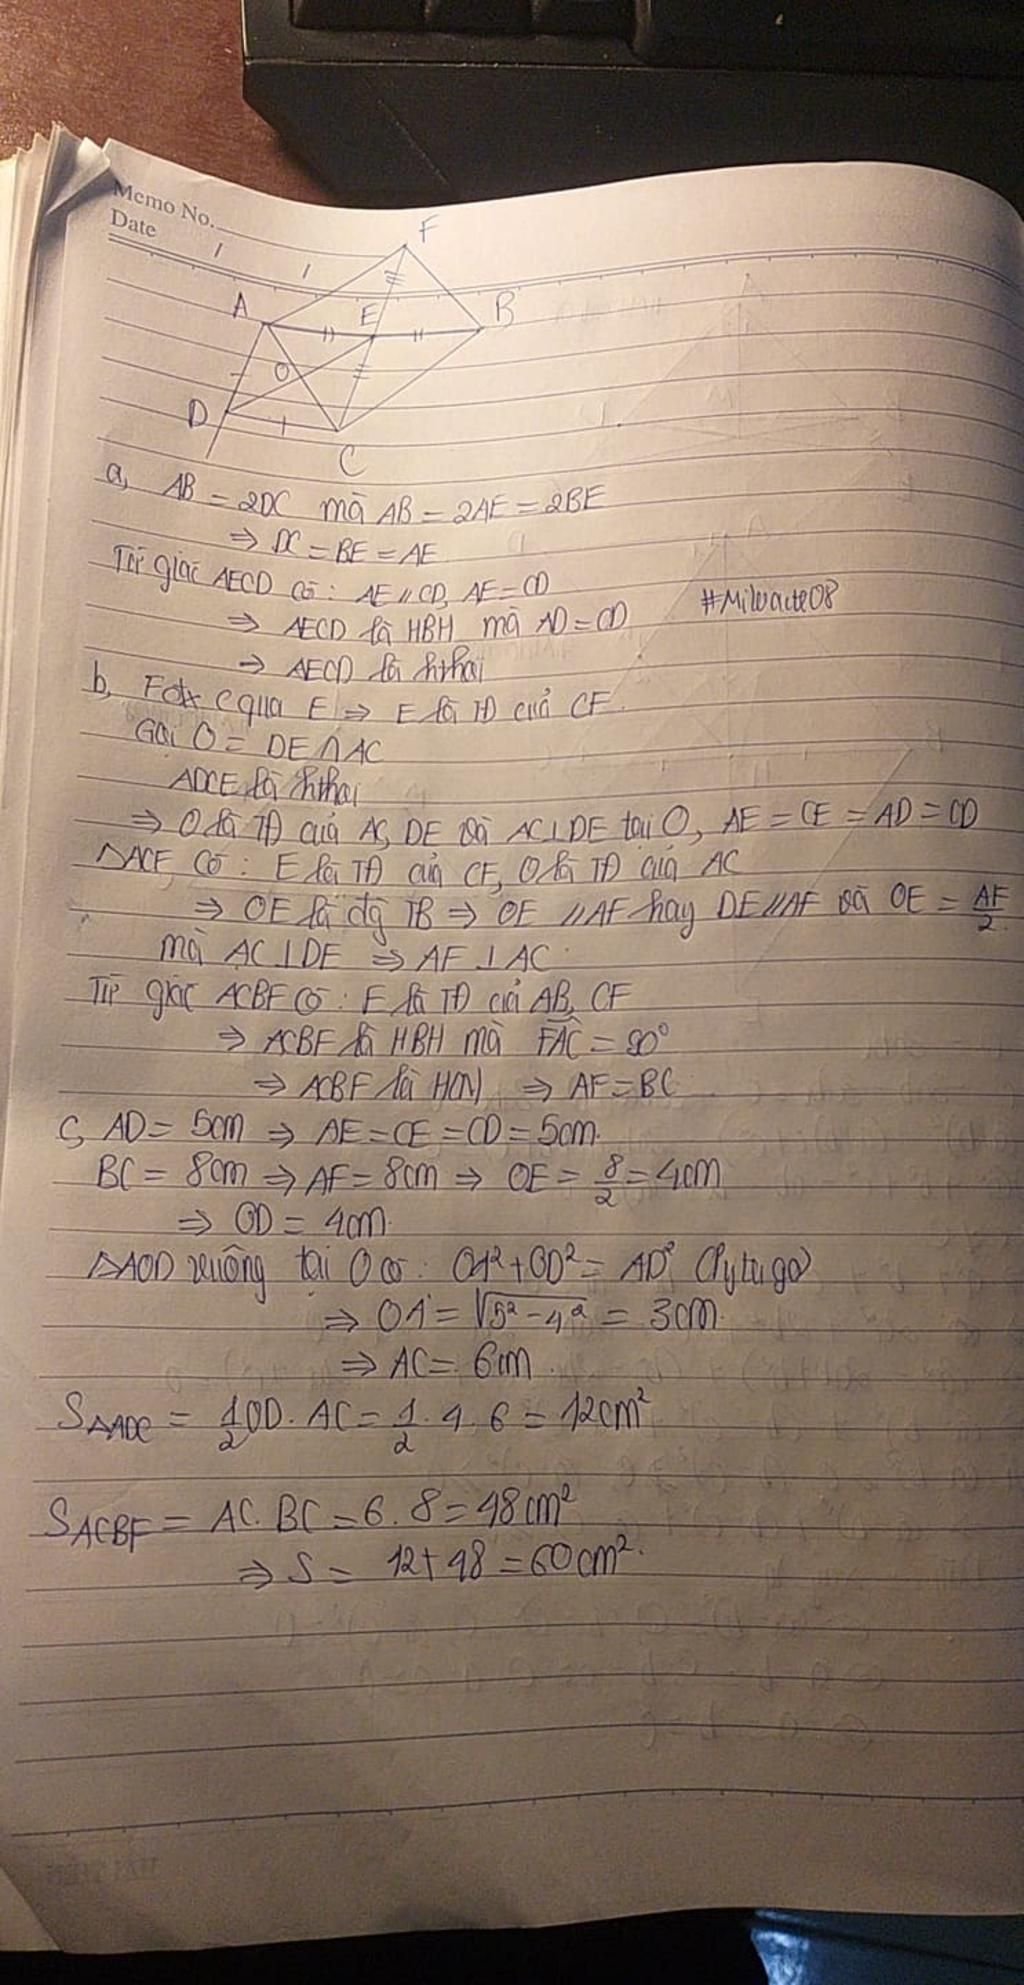 Memo No.
Date / /
F
A E B
O
D
C
a, AB = 2DC mà AB = 2AE = 2BE
⇒ DC = BE = AE
Tứ giác AECD có: AE // CD, AE = CD
#Milvacte08
⇒ AECD là HBH mà AD = CD
⇒ AECD là hthoi
b, F đx C qua E ⇒ E là TĐ của CF
Gọi O = DE ∩ AC
ADCE là hthoi
⇒ O là TĐ của AC, DE và AC ⊥ DE tại O, AE = CE = AD = CD
ΔACF có: E là TĐ của CF, O là TĐ của AC
⇒ OE là đg TB ⇒ OE // AF hay DE // AF và OE = AF/2
mà AC ⊥ DE ⇒ AF ⊥ AC
Tứ giác ACBF có: E là TĐ của AB, CF
⇒ ACBF là HBH mà FAC = 90°
⇒ ACBF là HCN ⇒ AF = BC
c, AD = 5cm ⇒ AE = CE = CD = 5cm.
BC = 8cm ⇒ AF = 8cm ⇒ OE = 8/2 = 4cm
⇒ OD = 4cm.
ΔAOD vuông tại O có: OA² + OD² = AD² (Pytago)
⇒ OA = √5² - 4² = 3cm.
⇒ AC = 6cm.
SΔADC = 1/2 OD. AC = 1/2 . 4 . 6 = 12cm²
SACBF = AC. BC = 6 . 8 = 48cm²
⇒ S = 12 + 48 = 60cm².